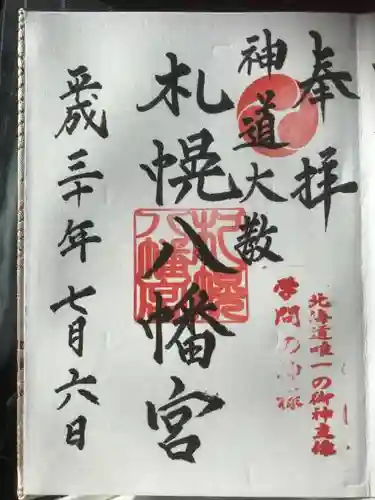 奉拝
神道大教
札幌八幡宮
平成三十年七月六日
北海道唯一の御神主様
学問の神様
札幌八幡宮